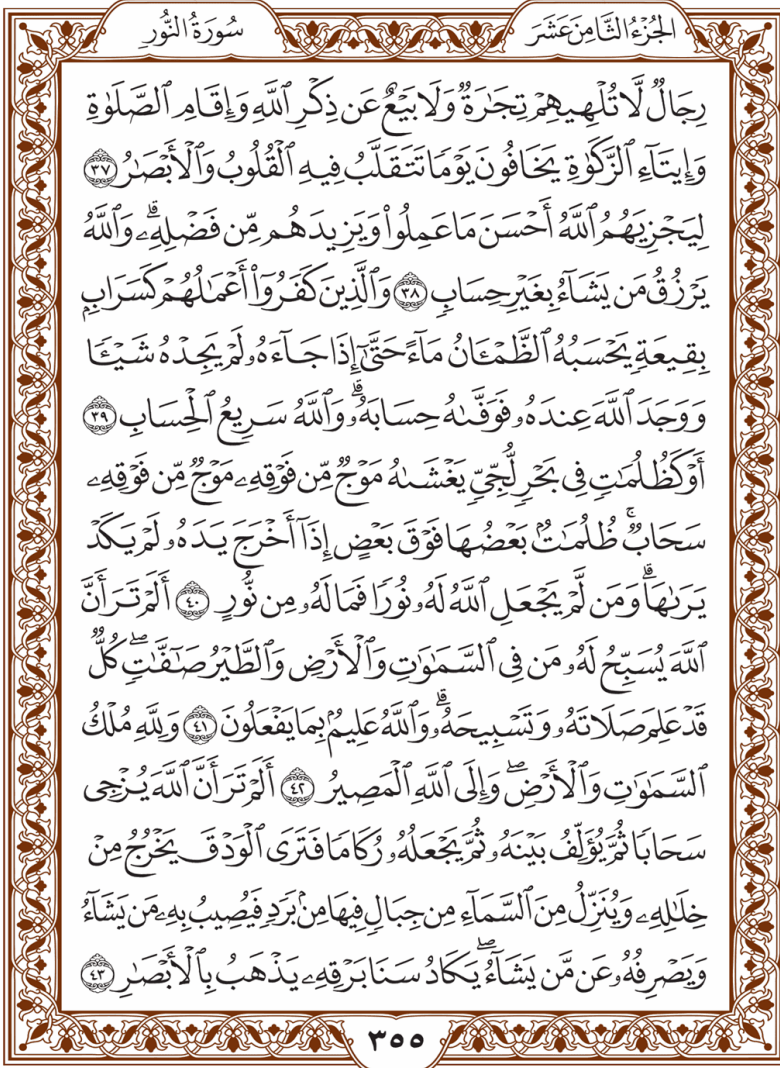 الجُزْءُ الثَّامِنَ عَشَرَ
سُورَةُ النُّورِ
رِجَالٌ لَّا تُلْهِيهِمْ تِجَٰرَةٌ وَلَا بَيْعٌ عَن ذِكْرِ ٱللَّهِ وَإِقَامِ ٱلصَّلَوٰةِ
وَإِيتَآءِ ٱلزَّكَوٰةِ يَخَافُونَ يَوْمًا تَتَقَلَّبُ فِيهِ ٱلْقُلُوبُ وَٱلْأَبْصَٰرُ ٣٧
لِيَجْزِيَهُمُ ٱللَّهُ أَحْسَنَ مَا عَمِلُوا۟ وَيَزِيدَهُم مِّن فَضْلِهِۦ ۗ وَٱللَّهُ
يَرْزُقُ مَن يَشَآءُ بِغَيْرِ حِسَابٍ ٣٨ وَٱلَّذِينَ كَفَرُوٓا۟ أَعْمَٰلُهُمْ كَسَرَابٍۭ
بِقِيعَةٍ يَحْسَبُهُ ٱلظَّمْـَٔانُ مَآءً حَتَّىٰٓ إِذَا جَآءَهُۥ لَمْ يَجِدْهُ شَيْـًٔا
وَوَجَدَ ٱللَّهَ عِندَهُۥ فَوَفَّىٰهُ حِسَابَهُۥ ۗ وَٱللَّهُ سَرِيعُ ٱلْحِسَابِ ٣٩
أَوْ كَظُلُمَٰتٍ فِى بَحْرٍ لُّجِّىٍّ يَغْشَىٰهُ مَوْجٌ مِّن فَوْقِهِۦ مَوْجٌ مِّن فَوْقِهِۦ
سَحَابٌ ۚ ظُلُمَٰتٌۢ بَعْضُهَا فَوْقَ بَعْضٍ إِذَآ أَخْرَجَ يَدَهُۥ لَمْ يَكَدْ
يَرَىٰهَا ۗ وَمَن لَّمْ يَجْعَلِ ٱللَّهُ لَهُۥ نُورًا فَمَا لَهُۥ مِن نُّورٍ ٤٠ أَلَمْ تَرَ أَنَّ
ٱللَّهَ يُسَبِّحُ لَهُۥ مَن فِى ٱلسَّمَٰوَٰتِ وَٱلْأَرْضِ وَٱلطَّيْرُ صَٰٓفَّٰتٍ ۖ كُلٌّ
قَدْ عَلِمَ صَلَاتَهُۥ وَتَسْبِيحَهُۥ ۗ وَٱللَّهُ عَلِيمٌۢ بِمَا يَفْعَلُونَ ٤١ وَلِلَّهِ مُلْكُ
ٱلسَّمَٰوَٰتِ وَٱلْأَرْضِ ۖ وَإِلَى ٱللَّهِ ٱلْمَصِيرُ ٤٢ أَلَمْ تَرَ أَنَّ ٱللَّهَ يُزْجِى
سَحَابًا ثُمَّ يُؤَلِّفُ بَيْنَهُۥ ثُمَّ يَجْعَلُهُۥ رُكَامًا فَتَرَى ٱلْوَدْقَ يَخْرُجُ مِنْ
خِلَٰلِهِۦ وَيُنَزِّلُ مِنَ ٱلسَّمَآءِ مِن جِبَالٍ فِيهَا مِنۢ بَرَدٍ فَيُصِيبُ بِهِۦ مَن يَشَآءُ
وَيَصْرِفُهُۥ عَن مَّن يَشَآءُ ۖ يَكَادُ سَنَا بَرْقِهِۦ يَذْهَبُ بِٱلْأَبْصَٰرِ ٤٣
٣٥٥